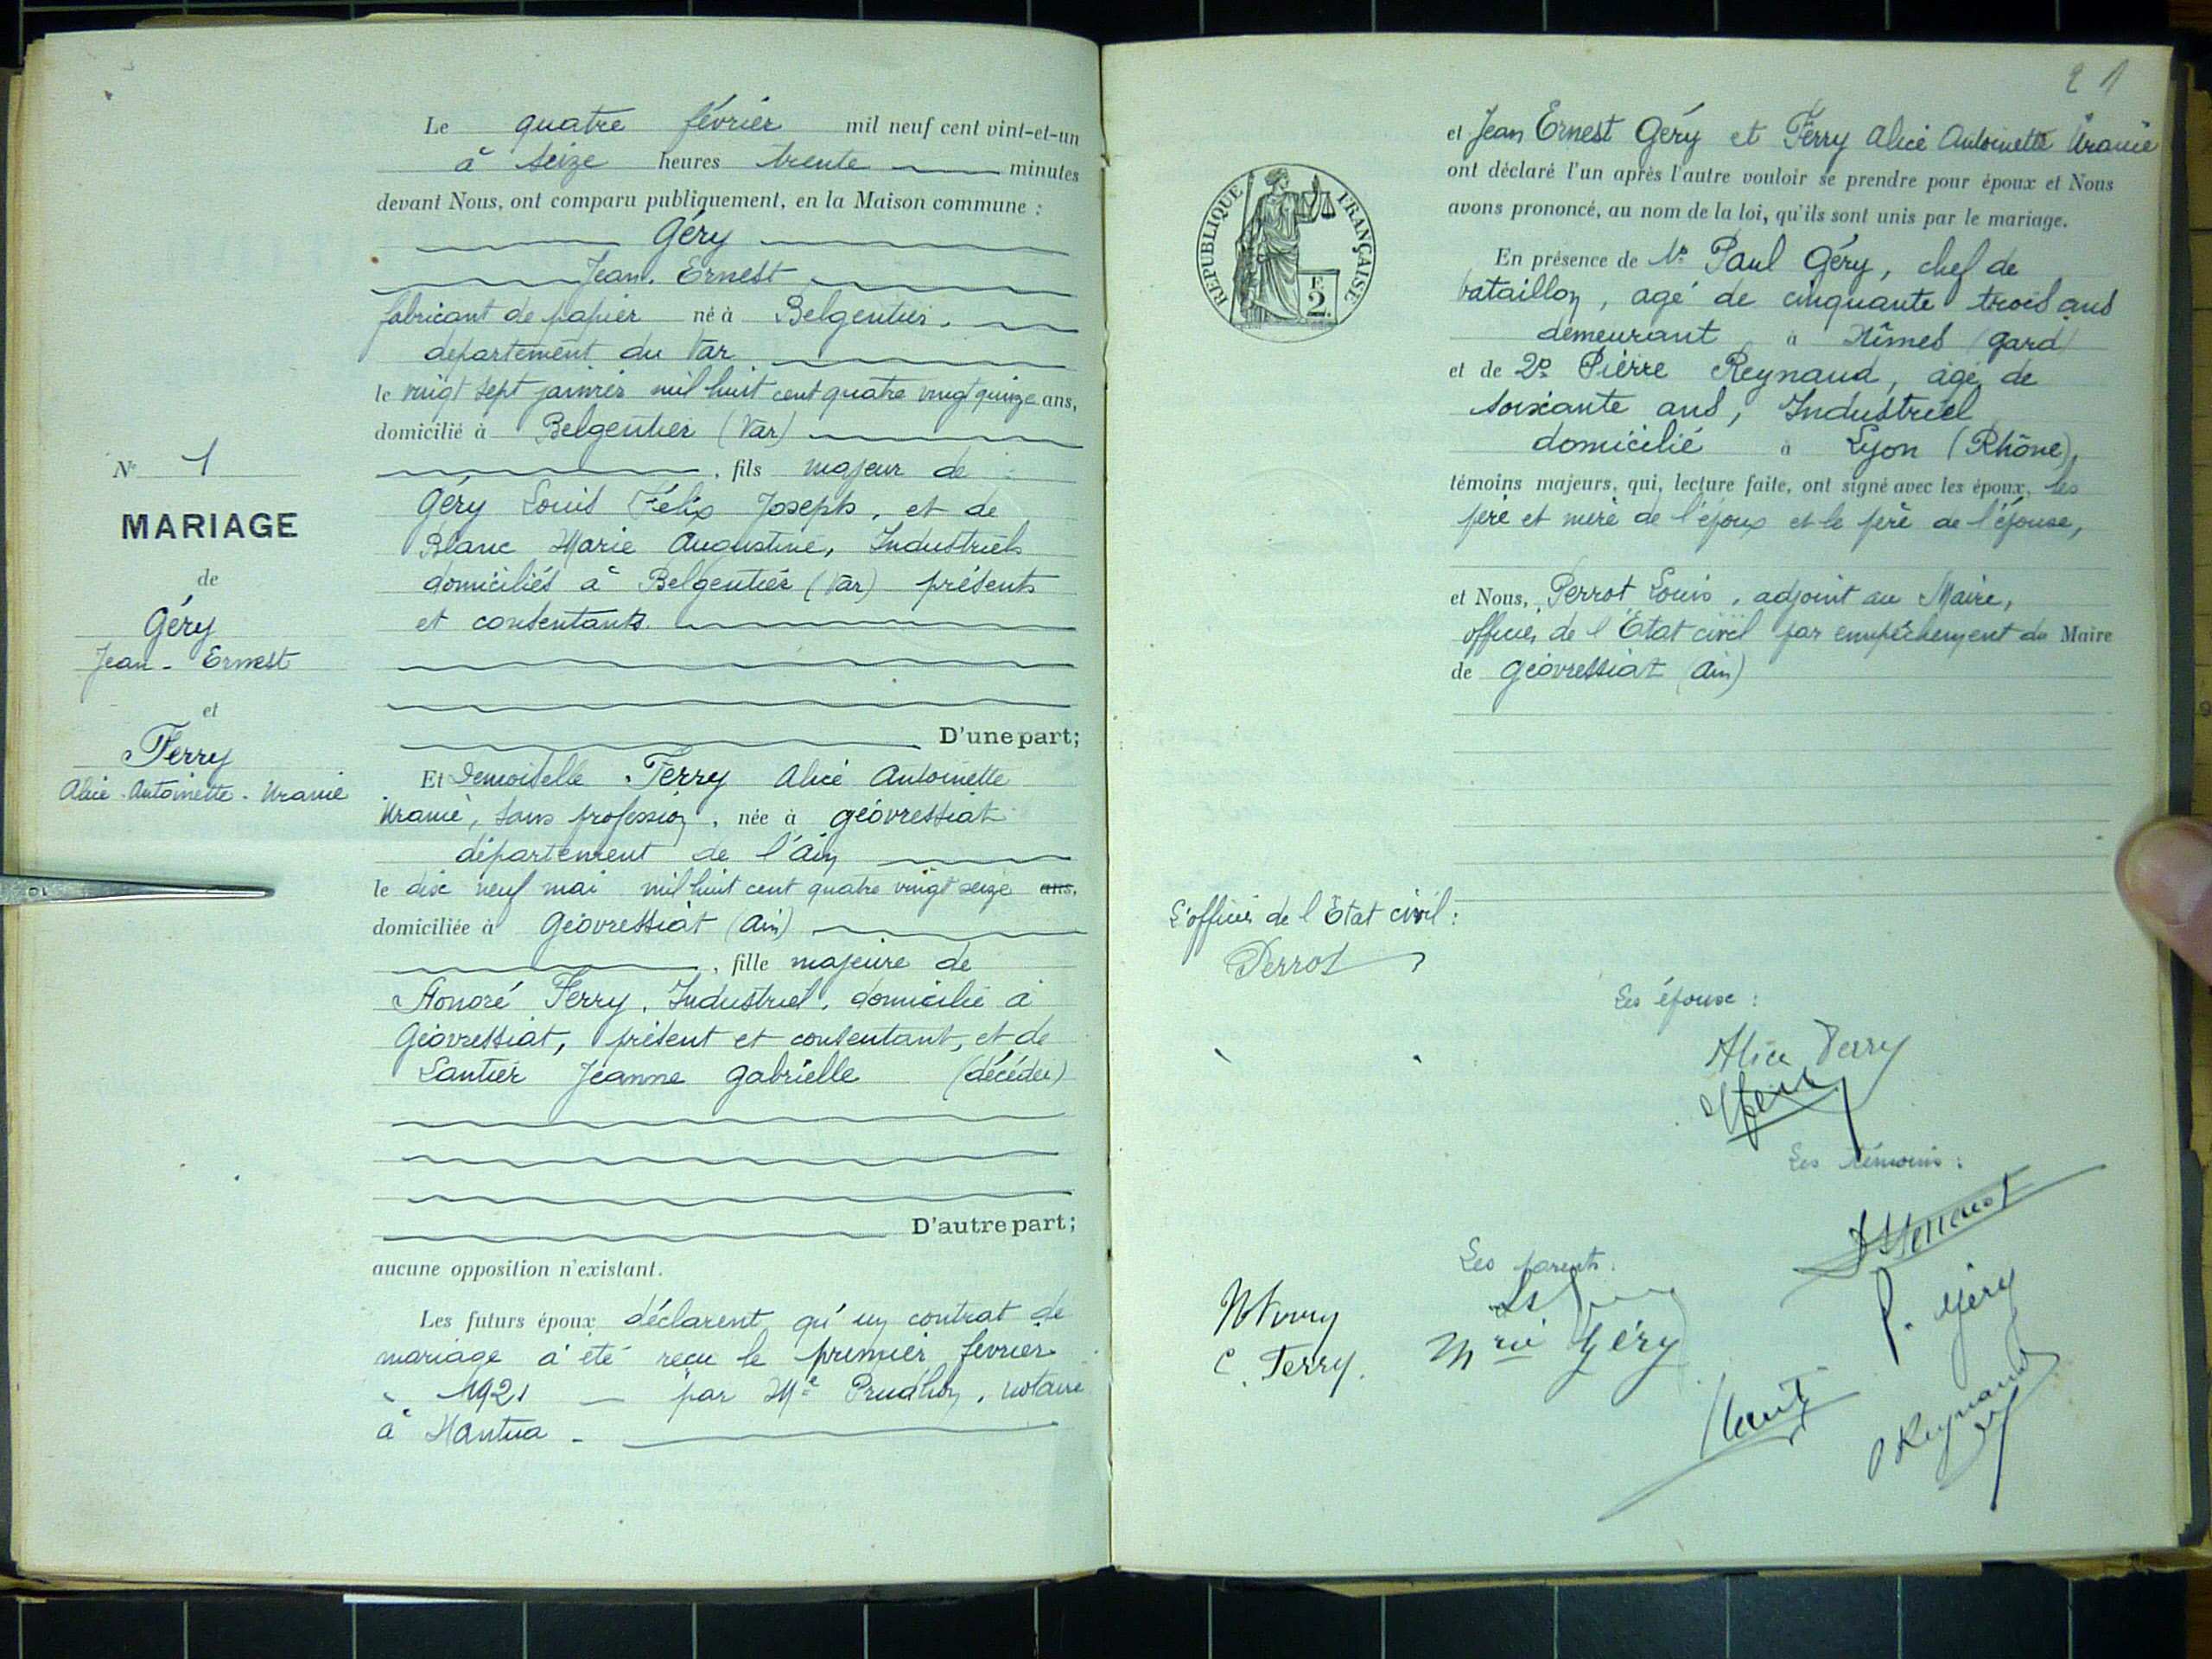 Le quatre février mil neuf cent vint-et-un
à seize heures trente minutes
devant Nous, ont comparu publiquement, en la Maison commune :
Géry
Jean. Ernest
fabricant de papier né à Belgentier.
département du Var
le vingt sept janvier mil huit cent quatre vingt quinze ans,
domicilié à Belgentier (Var)
, fils majeur de
Géry Louis Félix Joseph, et de
Blanc Marie Augustine, Industriels
domiciliés à Belgentier (Var) présents
et consentants.
D'une part;
Et Demoiselle Ferry Alice Antoinette
Uranie, sans profession, née à Géovressiat
département de l'Ain
le dix neuf mai mil huit cent quatre vingt seize ans,
domiciliée à Géovressiat (Ain)
, fille majeure de
Honoré Ferry, Industriel, domicilié à
Géovressiat, présent et consentant, et de
Lantier Jeanne Gabrielle (décédée)
D'autre part;
aucune opposition n'existant.
Les futurs époux déclarent qu'un contrat de
mariage a été reçu le premier février
1921 par Me Prudhon, notaire
à Nantua.
N° 1
MARIAGE
de
Géry
Jean - Ernest
et
Ferry
Alice - Antoinette - Uranie
21
et Jean Ernest Géry et Ferry Alice Antoinette Uranie
ont déclaré l'un après l'autre vouloir se prendre pour époux et Nous
avons prononcé, au nom de la loi, qu'ils sont unis par le mariage.
En présence de 1º Paul Géry, chef de
bataillon, agé de cinquante trois ans
demeurant à Nîmes (Gard)
et de 2º Pierre Reynaud, agé de
soixante ans, Industriel
domicilié à Lyon (Rhône),
témoins majeurs, qui, lecture faite, ont signé avec les époux, les
père et mère de l'époux et le père de l'épouse,
et Nous, Perrot Louis, adjoint au Maire,
officier de l'Etat civil par empêchement du Maire
de Géovressiat (Ain)
RÉPUBLIQUE FRANÇAISE
F
2.
L'officier de l'Etat civil :
Perrot
Les époux :
Alice Ferry
Les témoins :
P. Géry
P Reynaud
Les parents :
Mrie Géry
H Ferry
C. Ferry.